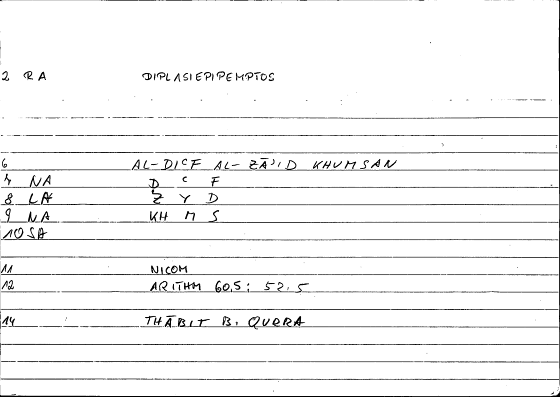 2 RA DIPLASIEPIPEMPTOS
6 AL-DIᶜF AL-ZĀʾID KHUMSAN
7 NA D ᶜ F
8 LA Z Y D
9 NA KH M S
10 SA
11 NICOM
12 ARITHM 60.5 : 52.5
14 THĀBIT B. QURRA